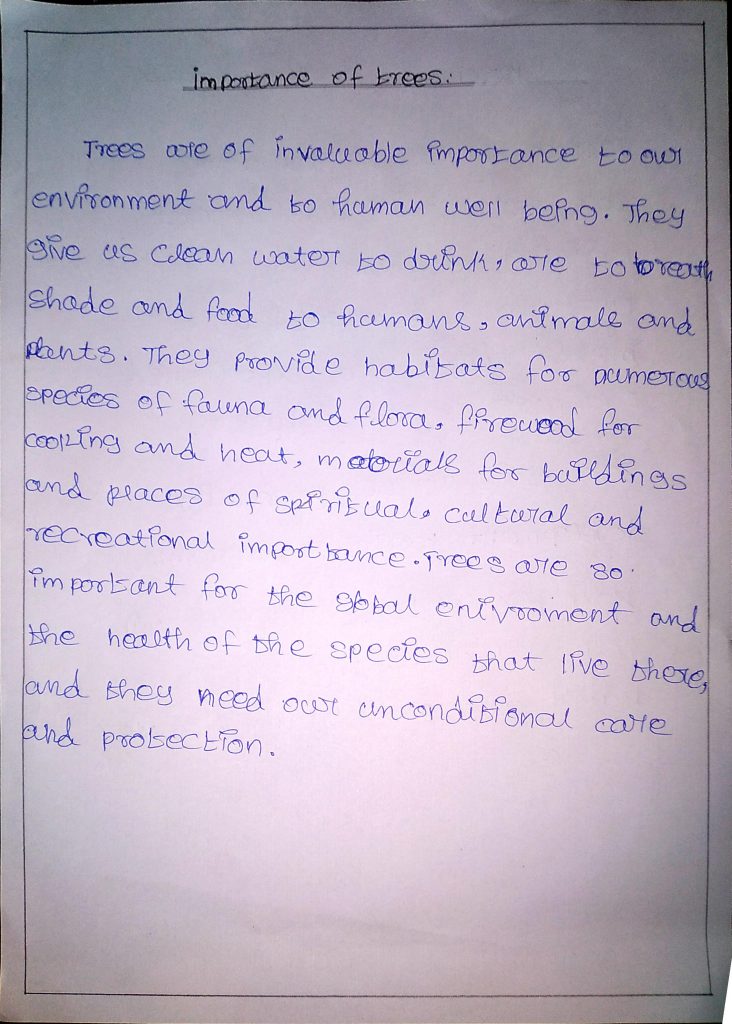 importance of trees.
Trees are of invaluable importance to our
environment and to human well being. They
give us clean water to drink, are to breath
shade and food to humans, animals and
plants. They provide habitats for numerous
species of fauna and flora, firewood for
cooking and heat, materials for buildings
and places of spiritual, cultural and
recreational importtance. Trees are so
important for the global enivroment and
the health of the species that live there,
and they need our unconditional care
and protection.